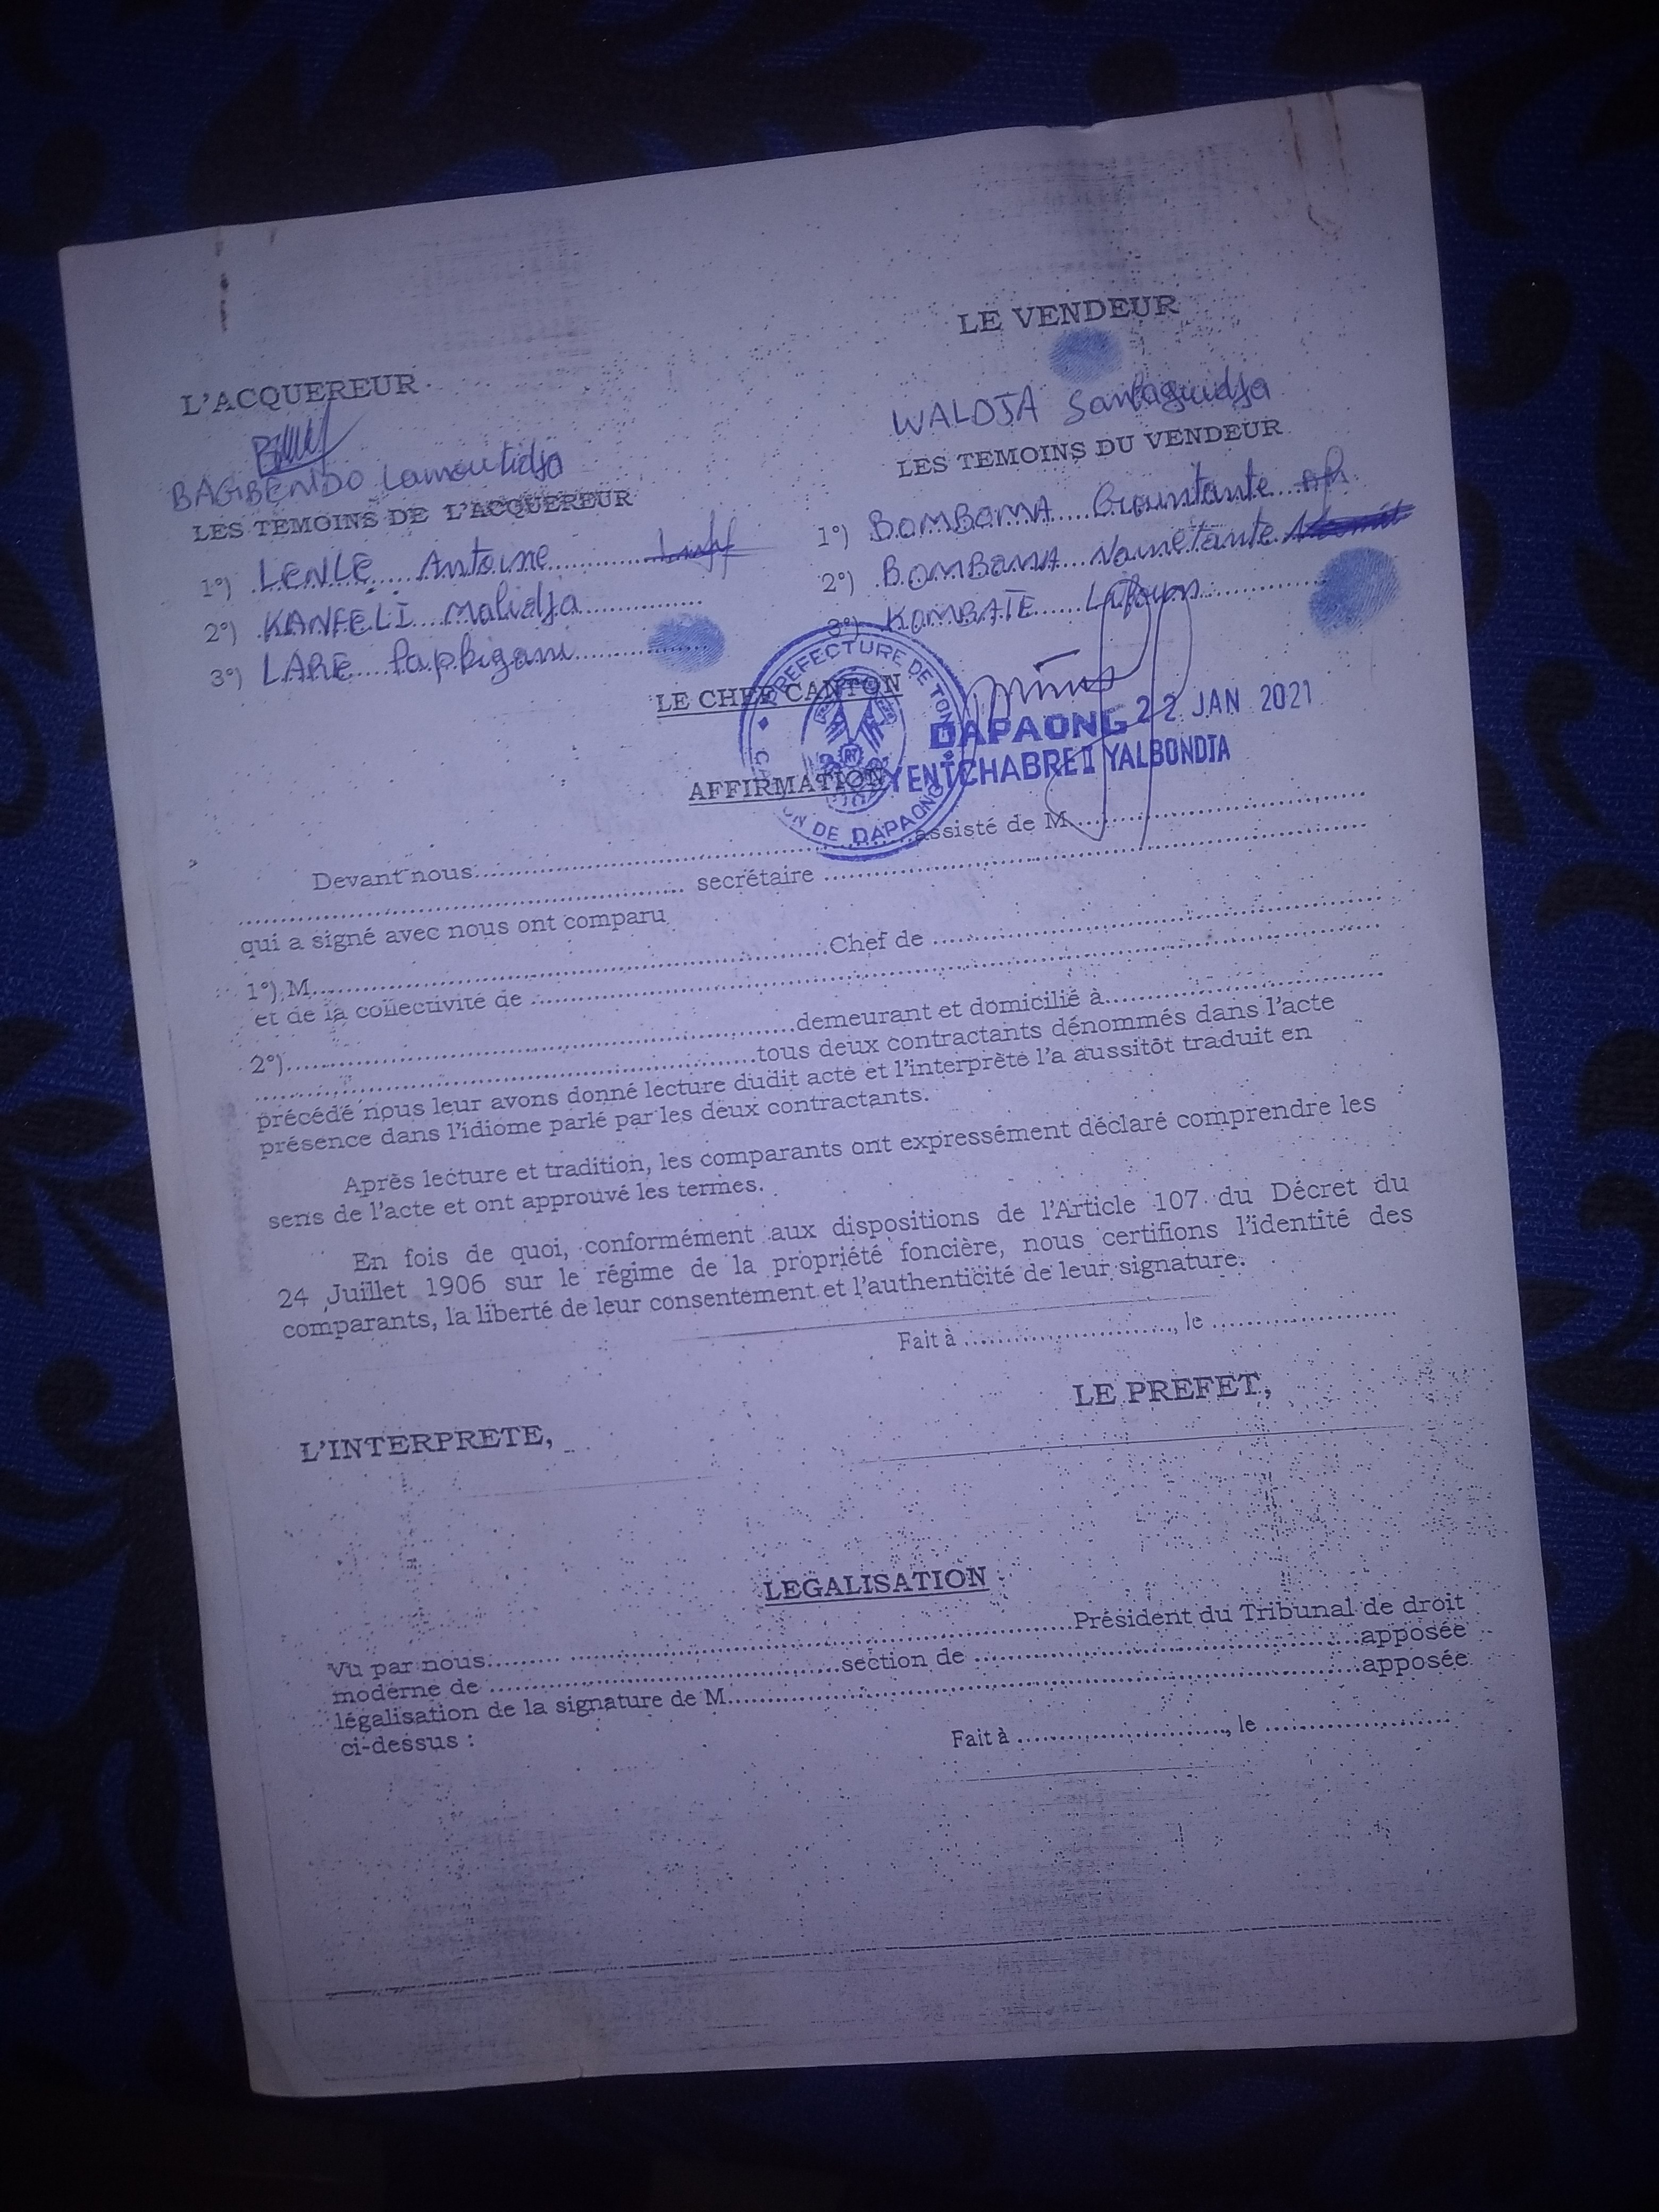 LE VENDEUR
L'ACQUEREUR
WALDJA Sanlaguidja
BAGBENDO Lamoutidja
LES TEMOINS DU VENDEUR
LES TEMOINS DE L'ACQUEREUR
1°) BOMBOMA Gountante
1°) LENLE Antoine
2°) BOMBOMA Namétante
2°) KANFELI Malidja
3°) KOMBATE
3°) LARE Pappigani
LE CHEF CANTON
PREFECTURE DE TONE
CANTON DE DAPAONG
DAPAONG 22 JAN 2021
YENTCHABRE II YALBONDIA
AFFIRMATION
Devant nous..............................assisté de M..............................
.............................. secrétaire ..............................
qui a signé avec nous ont comparu
1°) M..............................Chef de ..............................
et de la collectivité de ..............................
2°)..............................demeurant et domicilié à..............................
..............................tous deux contractants dénommés dans l'acte
précédé nous leur avons donné lecture dudit acte et l'interprète l'a aussitôt traduit en
présence dans l'idiome parlé par les deux contractants.
Après lecture et tradition, les comparants ont expressément déclaré comprendre les
sens de l'acte et ont approuvé les termes.
En fois de quoi, conformément aux dispositions de l'Article 107 du Décret du
24 Juillet 1906 sur le régime de la propriété foncière, nous certifions l'identité des
comparants, la liberté de leur consentement et l'authenticité de leur signature.
Fait à .............................., le ..............................
LE PREFET,
L'INTERPRETE,
LEGALISATION
Vu par nous..............................Président du Tribunal de droit
moderne de ..............................section de ..............................apposée
légalisation de la signature de M..............................apposée
ci-dessus :
Fait à .............................., le ..............................